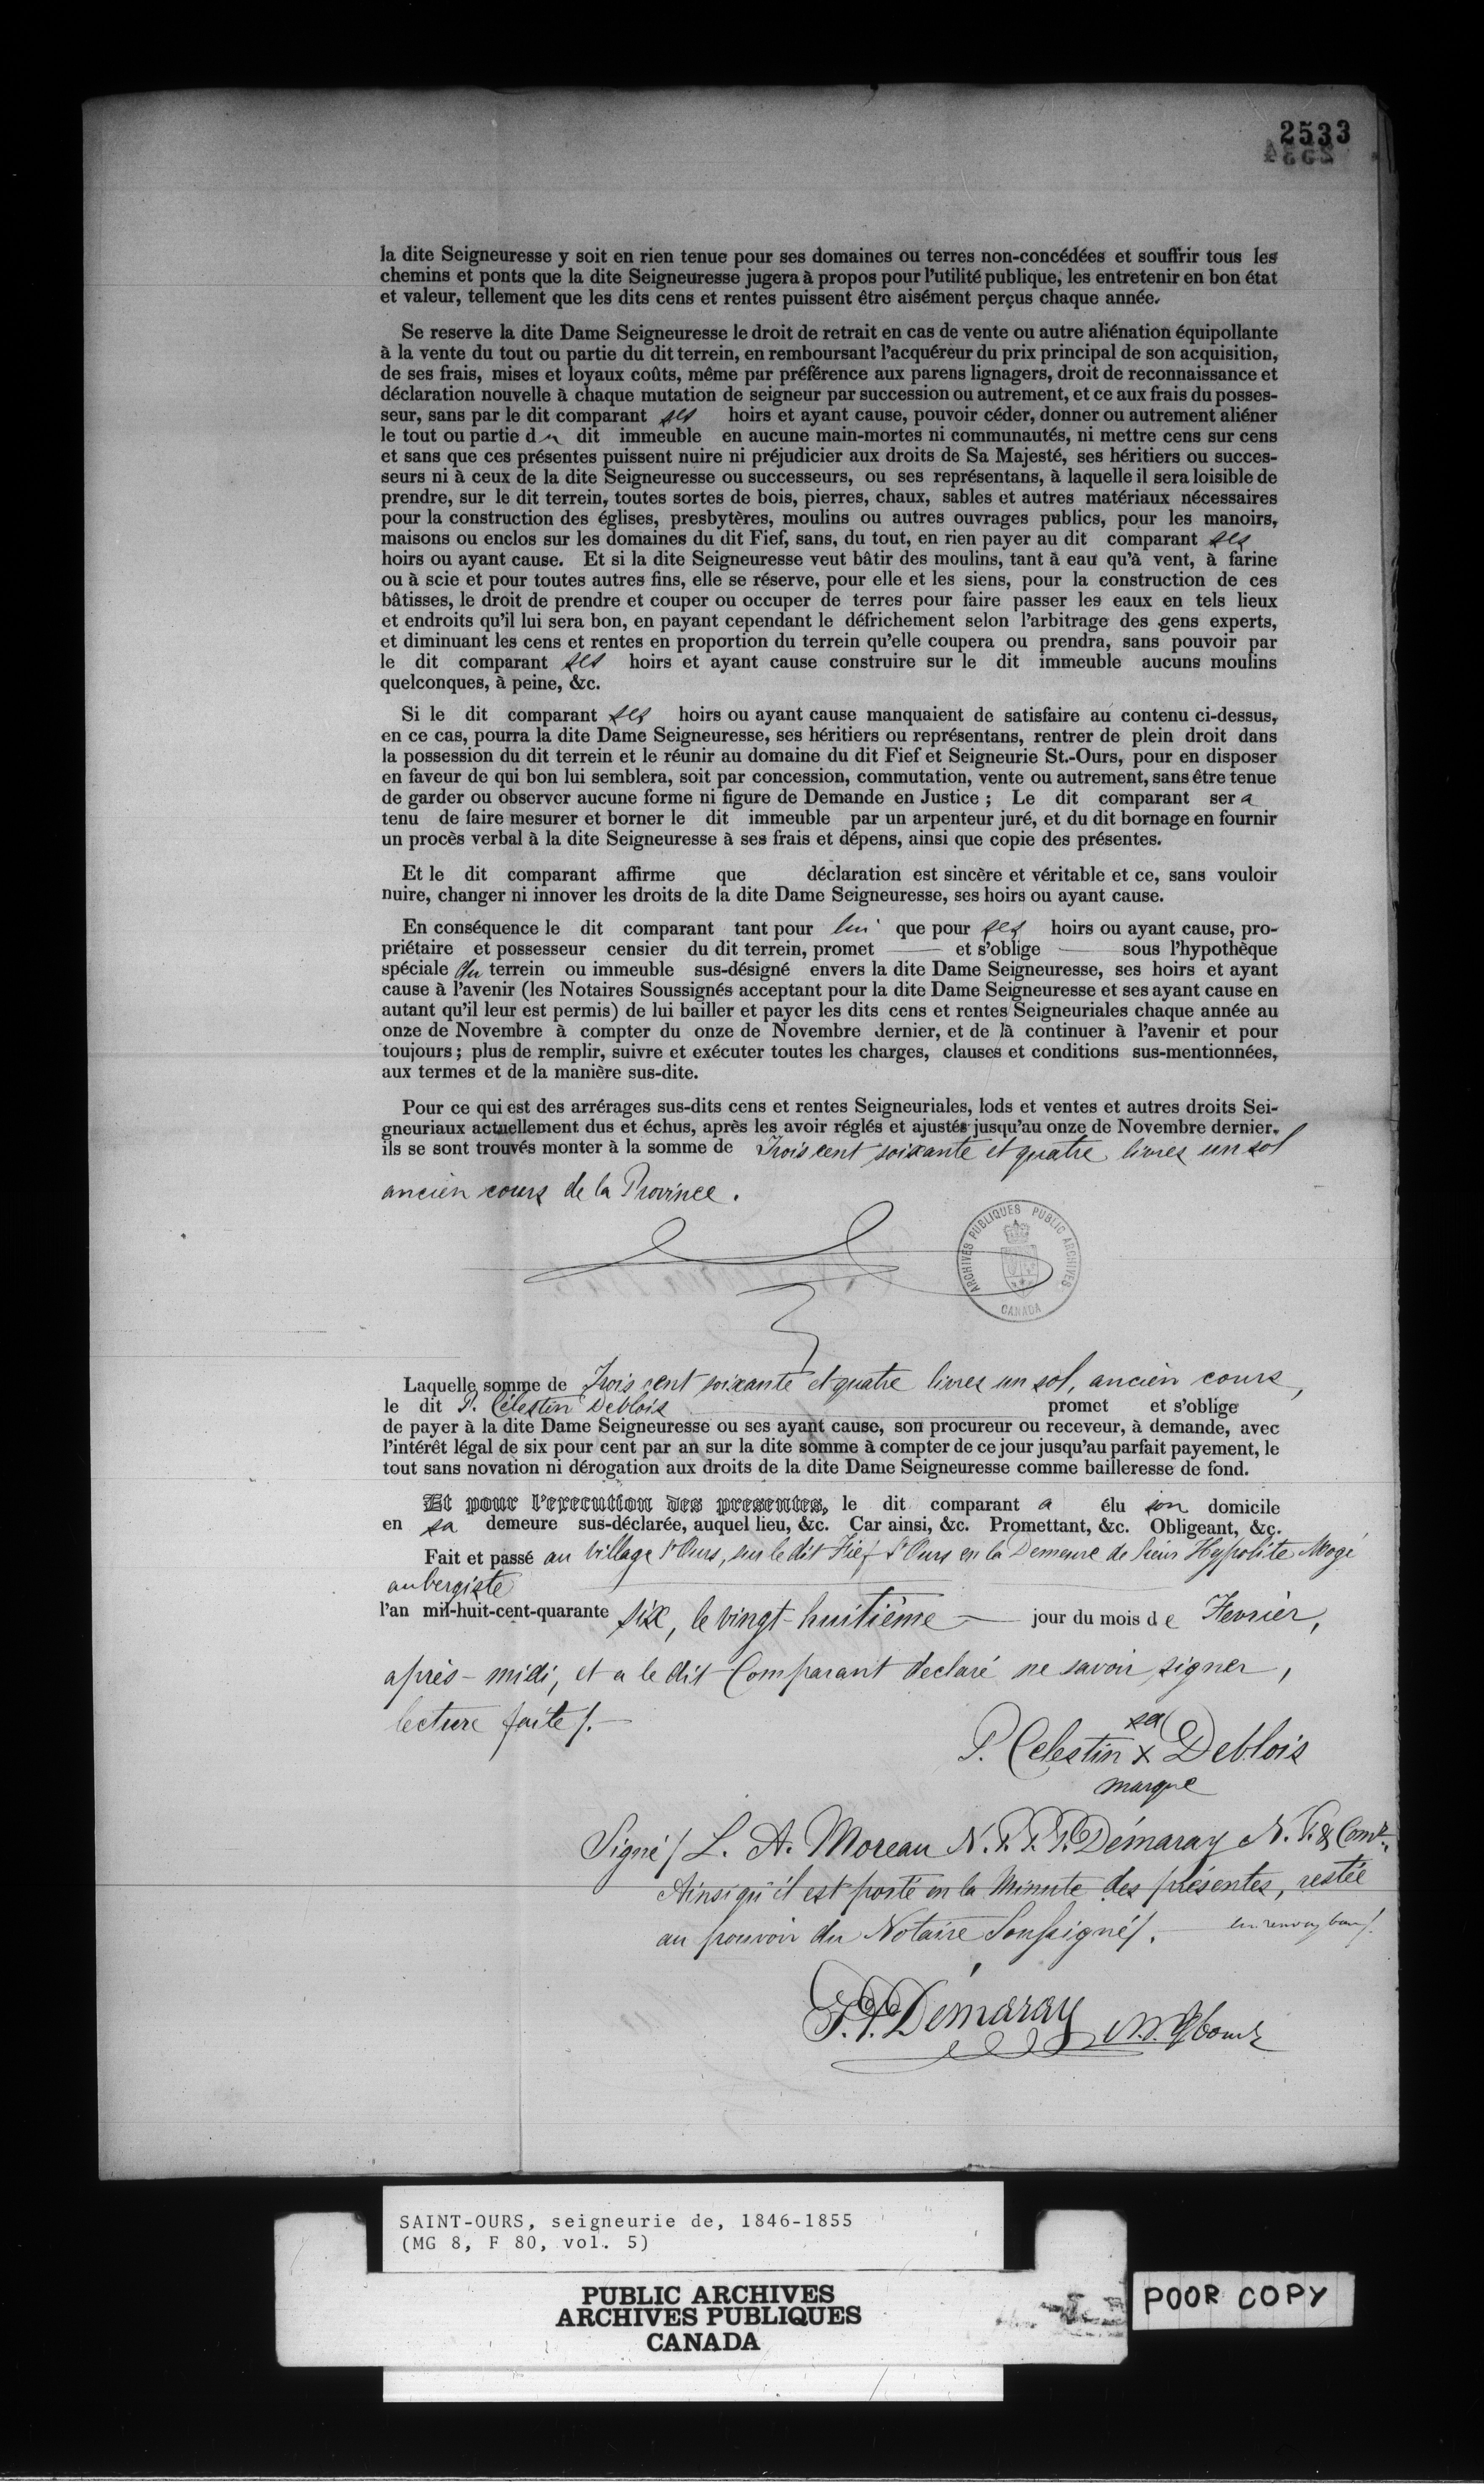 2533
la dite Seigneuresse y soit en rien tenue pour ses domaines ou terres non-concédées et souffrir tous les
chemins et ponts que la dite Seigneuresse jugera à propos pour l'utilité publique, les entretenir en bon état
et valeur, tellement que les dits cens et rentes puissent être aisément perçus chaque année.
Se reserve la dite Dame Seigneuresse le droit de retrait en cas de vente ou autre aliénation équipollante
à la vente du tout ou partie du dit terrein, en remboursant l'acquéreur du prix principal de son acquisition,
de ses frais, mises et loyaux coûts, même par préférence aux parens lignagers, droit de reconnaissance et
déclaration nouvelle à chaque mutation de seigneur par succession ou autrement, et ce aux frais du posses-
seur, sans par le dit comparant ses hoirs et ayant cause, pouvoir céder, donner ou autrement aliéner
le tout ou partie du dit immeuble en aucune main-mortes ni communautés, ni mettre cens sur cens
et sans que ces présentes puissent nuire ni préjudicier aux droits de Sa Majesté, ses héritiers ou succes-
seurs ni à ceux de la dite Seigneuresse ou successeurs, ou ses représentans, à laquelle il sera loisible de
prendre, sur le dit terrein, toutes sortes de bois, pierres, chaux, sables et autres matériaux nécessaires
pour la construction des églises, presbytères, moulins ou autres ouvrages publics, pour les manoirs,
maisons ou enclos sur les domaines du dit Fief, sans, du tout, en rien payer au dit comparant ses
hoirs ou ayant cause. Et si la dite Seigneuresse veut bâtir des moulins, tant à eau qu'à vent, à farine
ou à scie et pour toutes autres fins, elle se réserve, pour elle et les siens, pour la construction de ces
bâtisses, le droit de prendre et couper ou occuper de terres pour faire passer les eaux en tels lieux
et endroits qu'il lui sera bon, en payant cependant le défrichement selon l'arbitrage des gens experts,
et diminuant les cens et rentes en proportion du terrein qu'elle coupera ou prendra, sans pouvoir par
le dit comparant ses hoirs et ayant cause construire sur le dit immeuble aucuns moulins
quelconques, à peine, &c.
Si le dit comparant ses hoirs ou ayant cause manquaient de satisfaire au contenu ci-dessus,
en ce cas, pourra la dite Dame Seigneuresse, ses héritiers ou représentans, rentrer de plein droit dans
la possession du dit terrein et le réunir au domaine du dit Fief et Seigneurie St.-Ours, pour en disposer
en faveur de qui bon lui semblera, soit par concession, commutation, vente ou autrement, sans être tenue
de garder ou observer aucune forme ni figure de Demande en Justice ; Le dit comparant sera
tenu de faire mesurer et borner le dit immeuble par un arpenteur juré, et du dit bornage en fournir
un procès verbal à la dite Seigneuresse à ses frais et dépens, ainsi que copie des présentes.
Et le dit comparant affirme que déclaration est sincère et véritable et ce, sans vouloir
nuire, changer ni innover les droits de la dite Dame Seigneuresse, ses hoirs ou ayant cause.
En conséquence le dit comparant tant pour lui que pour ses hoirs ou ayant cause, pro-
priétaire et possesseur censier du dit terrein, promet — et s'oblige — sous l'hypothèque
spéciale du terrein ou immeuble sus-désigné envers la dite Dame Seigneuresse, ses hoirs et ayant
cause à l'avenir (les Notaires Soussignés acceptant pour la dite Dame Seigneuresse et ses ayant cause en
autant qu'il leur est permis) de lui bailler et payer les dits cens et rentes Seigneuriales chaque année au
onze de Novembre à compter du onze de Novembre dernier, et de là continuer à l'avenir et pour
toujours ; plus de remplir, suivre et exécuter toutes les charges, clauses et conditions sus-mentionnées,
aux termes et de la manière sus-dite.
Pour ce qui est des arrérages sus-dits cens et rentes Seigneuriales, lods et ventes et autres droits Sei-
gneuriaux actuellement dus et échus, après les avoir réglés et ajustés jusqu'au onze de Novembre dernier.
ils se sont trouvés monter à la somme de Trois cent soixante et quatre livres un sol
ancien cours de la Province.
ARCHIVES PUBLIQUES PUBLIC ARCHIVES
CANADA
Laquelle somme de Trois cent soixante et quatre livres un sol, ancien cours,
le dit P. Célestin Deblois promet et s'oblige
de payer à la dite Dame Seigneuresse ou ses ayant cause, son procureur ou receveur, à demande, avec
l'intérêt légal de six pour cent par an sur la dite somme à compter de ce jour jusqu'au parfait payement, le
tout sans novation ni dérogation aux droits de la dite Dame Seigneuresse comme bailleresse de fond.
Et pour l'execution des presentes, le dit comparant a élu son domicile
en sa demeure sus-déclarée, auquel lieu, &c. Car ainsi, &c. Promettant, &c. Obligeant, &c.
Fait et passé au Village St Ours, sur le dit Fief St Ours en la Demeure de Sieur Hypolite Mogé
aubergiste
l'an mil-huit-cent-quarante six, le vingt-huitième — jour du mois de Fevrier,
après-midi, et a le dit Comparant declaré ne savoir signer,
lecture faite/.—
sa
P. Celestin x Deblois
marque
Signé/ L. A. Moreau N.P. P.P. Démaray N.P. & Comre.
Ainsi qu'il est porté en la Minute des présentes, restée
au pouvoir du Notaire Soussigné/.
P.P. Démaray N.P.
SAINT-OURS, seigneurie de, 1846-1855
(MG 8, F 80, vol. 5)
PUBLIC ARCHIVES
ARCHIVES PUBLIQUES
CANADA
POOR COPY